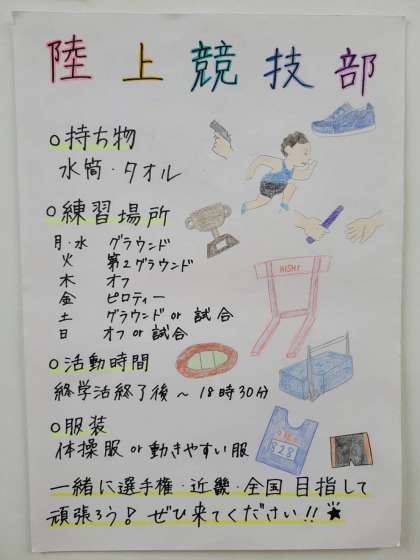 陸上競技部
○持ち物
水筒・タオル
○練習場所
月・水 グラウンド
火 第2グラウンド
木 オフ
金 ピロティー
土 グラウンド or 試合
日 オフ or 試合
NISHI
○活動時間
終学活終了後 ~ 18時30分
○服装
体操服 or 動きやすい服
328
一緒に選手権・近畿・全国 目指して
頑張ろう! ぜひ来てください!! ★